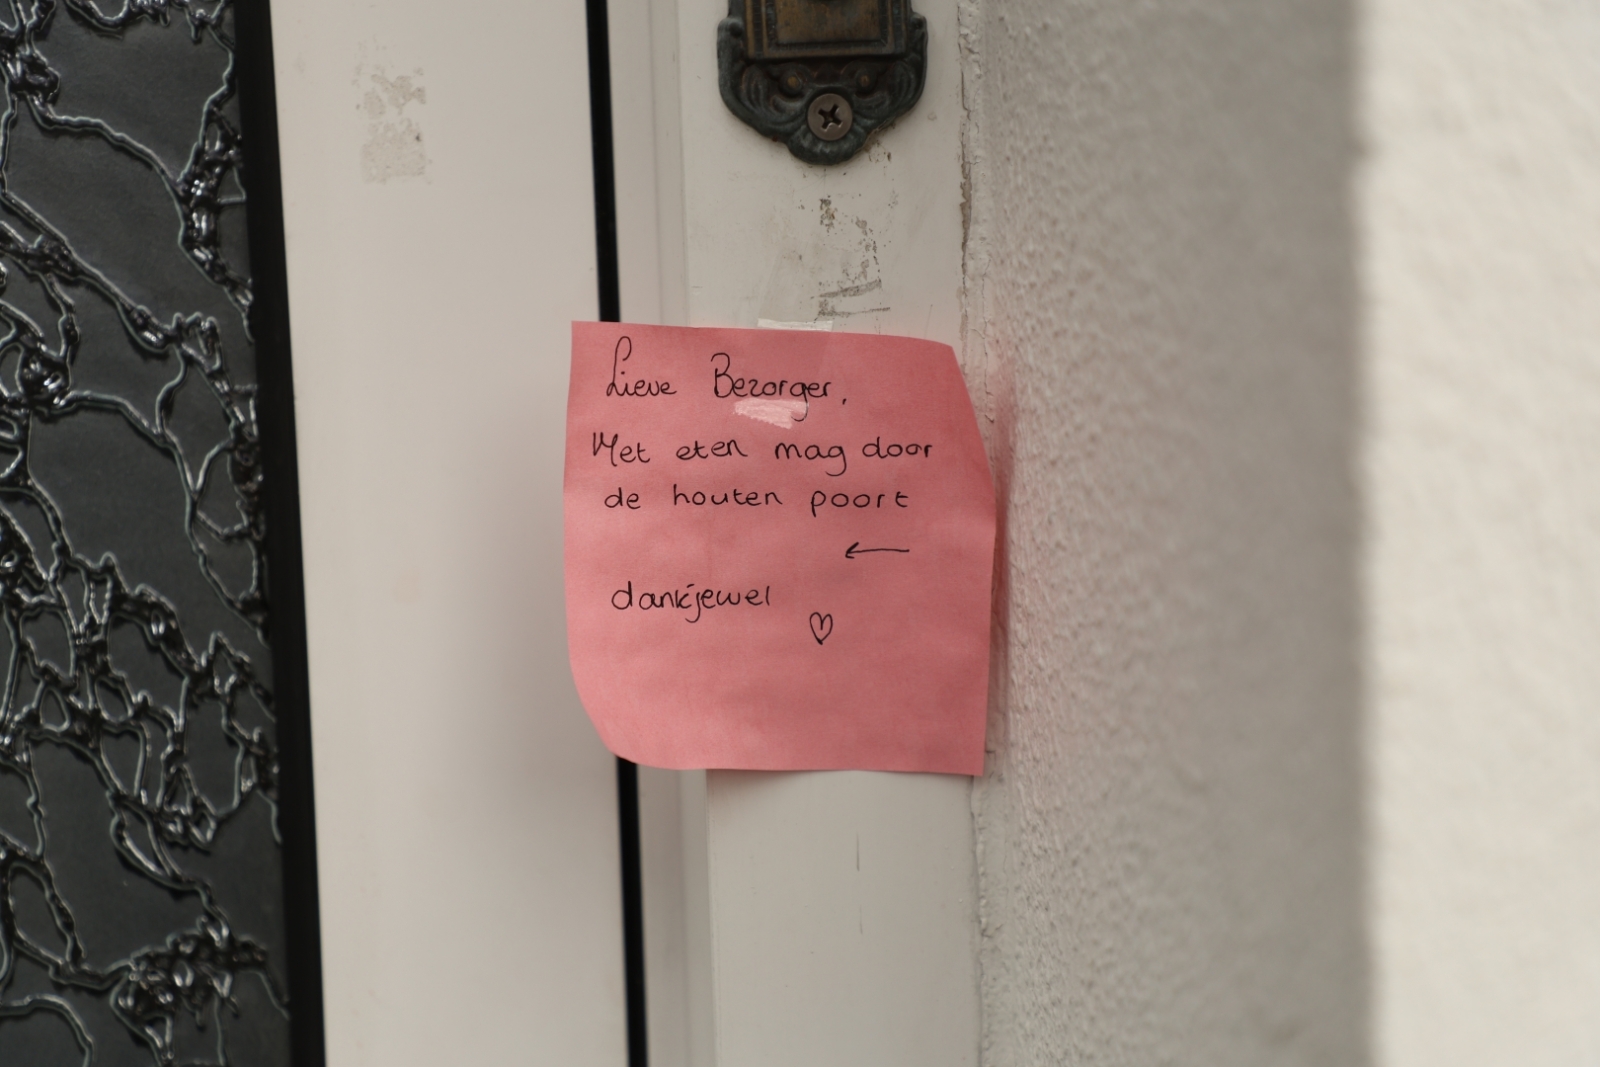 Lieve Bezorger,
Het eten mag door
de houten poort
←
dankjewel
♡